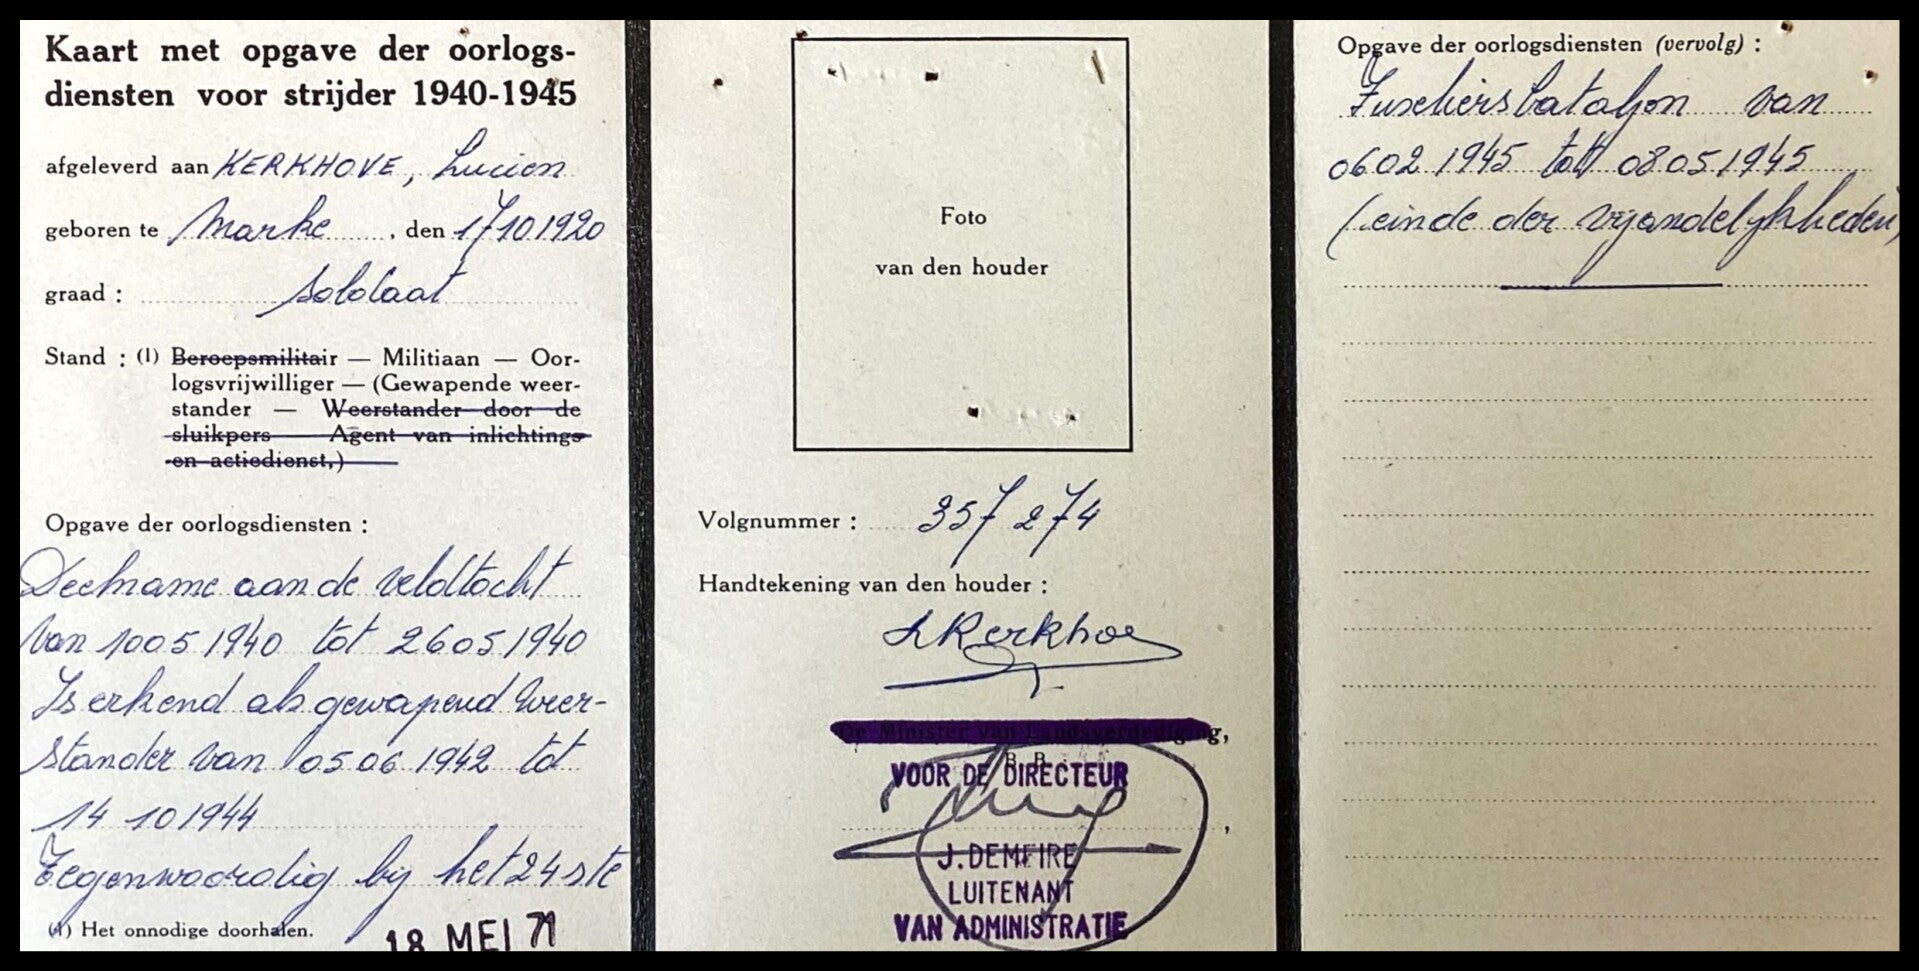 Kaart met opgave der oorlogs-
diensten voor strijder 1940-1945
afgeleverd aan KERKHOVE, Lucien
geboren te Marke, den 17 10 1920
graad : soldaat
Stand : (1) Beroepsmilitair — Militiaan — Oor-
logsvrijwilliger — (Gewapende weer-
stander — Weerstander door de
sluikpers — Agent van inlichtings-
en actiedienst,)
Opgave der oorlogsdiensten :
Deelname aan de veldtocht
van 10 05 1940 tot 26 05 1940
Is erkend als gewapend weer-
stander van 05 06 1942 tot
14 10 1944
Tegenwoordig bij het 24ste
(1) Het onnodige doorhalen.
18 MEI 71
Foto
van den houder
Volgnummer : 357 274
Handtekening van den houder :
LKerkhove
De Minister van Landsverdediging,
VOOR DE DIRECTEUR
J. DEMEIRE
LUITENANT
VAN ADMINISTRATIE
Opgave der oorlogsdiensten (vervolg) :
Fuseliersbataljon van
06 02 1945 tot 08 05 1945
(einde der vijandelijkheden)